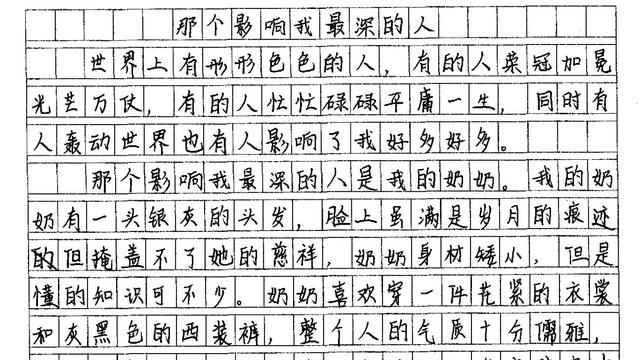 那个影响我最深的人
世界上有形形色色的人，有的人菜冠加冕
光芒万仗，有的人忙忙碌碌平庸一生，同时有
人轰动世界也有人影响了我好多好多。
那个影响我最深的人是我的奶奶。我的奶
奶有一头银灰的头发，脸上虽满是岁月的痕迹
的但掩盖不了她的慈祥，奶奶身材矮小，但是
懂的知识可不少。奶奶喜欢穿一件花紧的衣裳
和灰黑色的西装裤，整个人的气质十分儒雅，